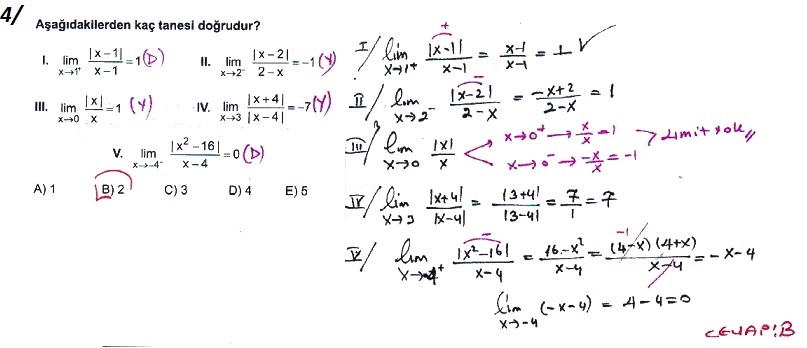 4/
Aşağıdakilerden kaç tanesi doğrudur?
I. lim x→1⁺ |x−1|/x−1 = 1 (D)
II. lim x→2⁻ |x−2|/2−x = −1 (Y)
III. lim x→0 |x|/x = 1 (Y)
IV. lim x→3 |x+4|/|x−4| = −7 (Y)
V. lim x→−4⁻ |x²−16|/x−4 = 0 (D)
A) 1 B) 2 C) 3 D) 4 E) 5
I/ lim x→1⁺ |x−1|/x−1 = x−1/x−1 = 1 ✓
+
II/ lim x→2⁻ |x−2|/2−x = −x+2/2−x = 1
−
III/ lim x→0 |x|/x
x→0⁺ → x/x = 1
x→0⁻ → −x/x = −1
Limit yok //
IV/ lim x→3 |x+4|/|x−4| = |3+4|/|3−4| = 7/1 = 7
V/ lim |x²−16|/x−4 = 16−x²/x−4 = (4−x)(4+x)/x−4 = −x−4
−
−1
lim x→−4 (−x−4) = 4−4=0
CEVAP:B